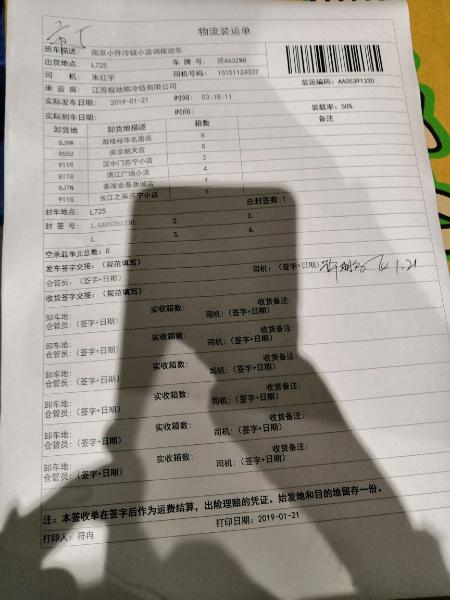 物流装运单
班车描述: 南京小件冷链小店调拨班车
出货地点: L725 车 牌 号: 苏A63ZW8
司 机: 朱红宇 司机号码: 15151124337
承 运 商: 江苏极地熊冷链有限公司 装运编码: AA05391330
实际发车日期: 2019-01-21 时间: 03:18:11 装载率: 50%
实际到车日期: 时间: 备注
卸货地 卸货地描述 箱数
8J9W 鼓楼裕华名居店 8
南京朝天宫 5
911R 汉中门苏宁小店 2
811G 清江广场小店 4
8J7N 秦淮金基唐城店 4
911G 长江之家苏宁小店 1
封车地点: L725 总封签数:1
封 签 号: 1.AA05391330 2. 3.
4. 5. 6.
空承载单元总数: 0
发车签字交接: (规范填写)
仓管员: (签字+日期) 司机: (签字+日期) 1.21
收货签字交接: (规范填写)
卸车地: 实收箱数: 收货备注:
仓管员: (签字+日期) 司机: (签字+日期)
卸车地: 实收箱数: 收货备注:
仓管员: (签字+日期) 司机: (签字+日期)
卸车地: 实收箱数: 收货备注:
仓管员: (签字+日期) 司机: (签字+日期)
卸车地: 实收箱数: 收货备注:
仓管员: (签字+日期) 司机: (签字+日期)
卸车地: 实收箱数: 收货备注:
仓管员: (签字+日期) 司机: (签字+日期)
卸车地: 实收箱数: 收货备注:
仓管员: (签字+日期) 司机: (签字+日期)
注: 本签收单在签字后作为运费结算, 出险理赔的凭证。始发地和目的地留存一份。
打印人: 符冉 打印日期: 2019-01-21